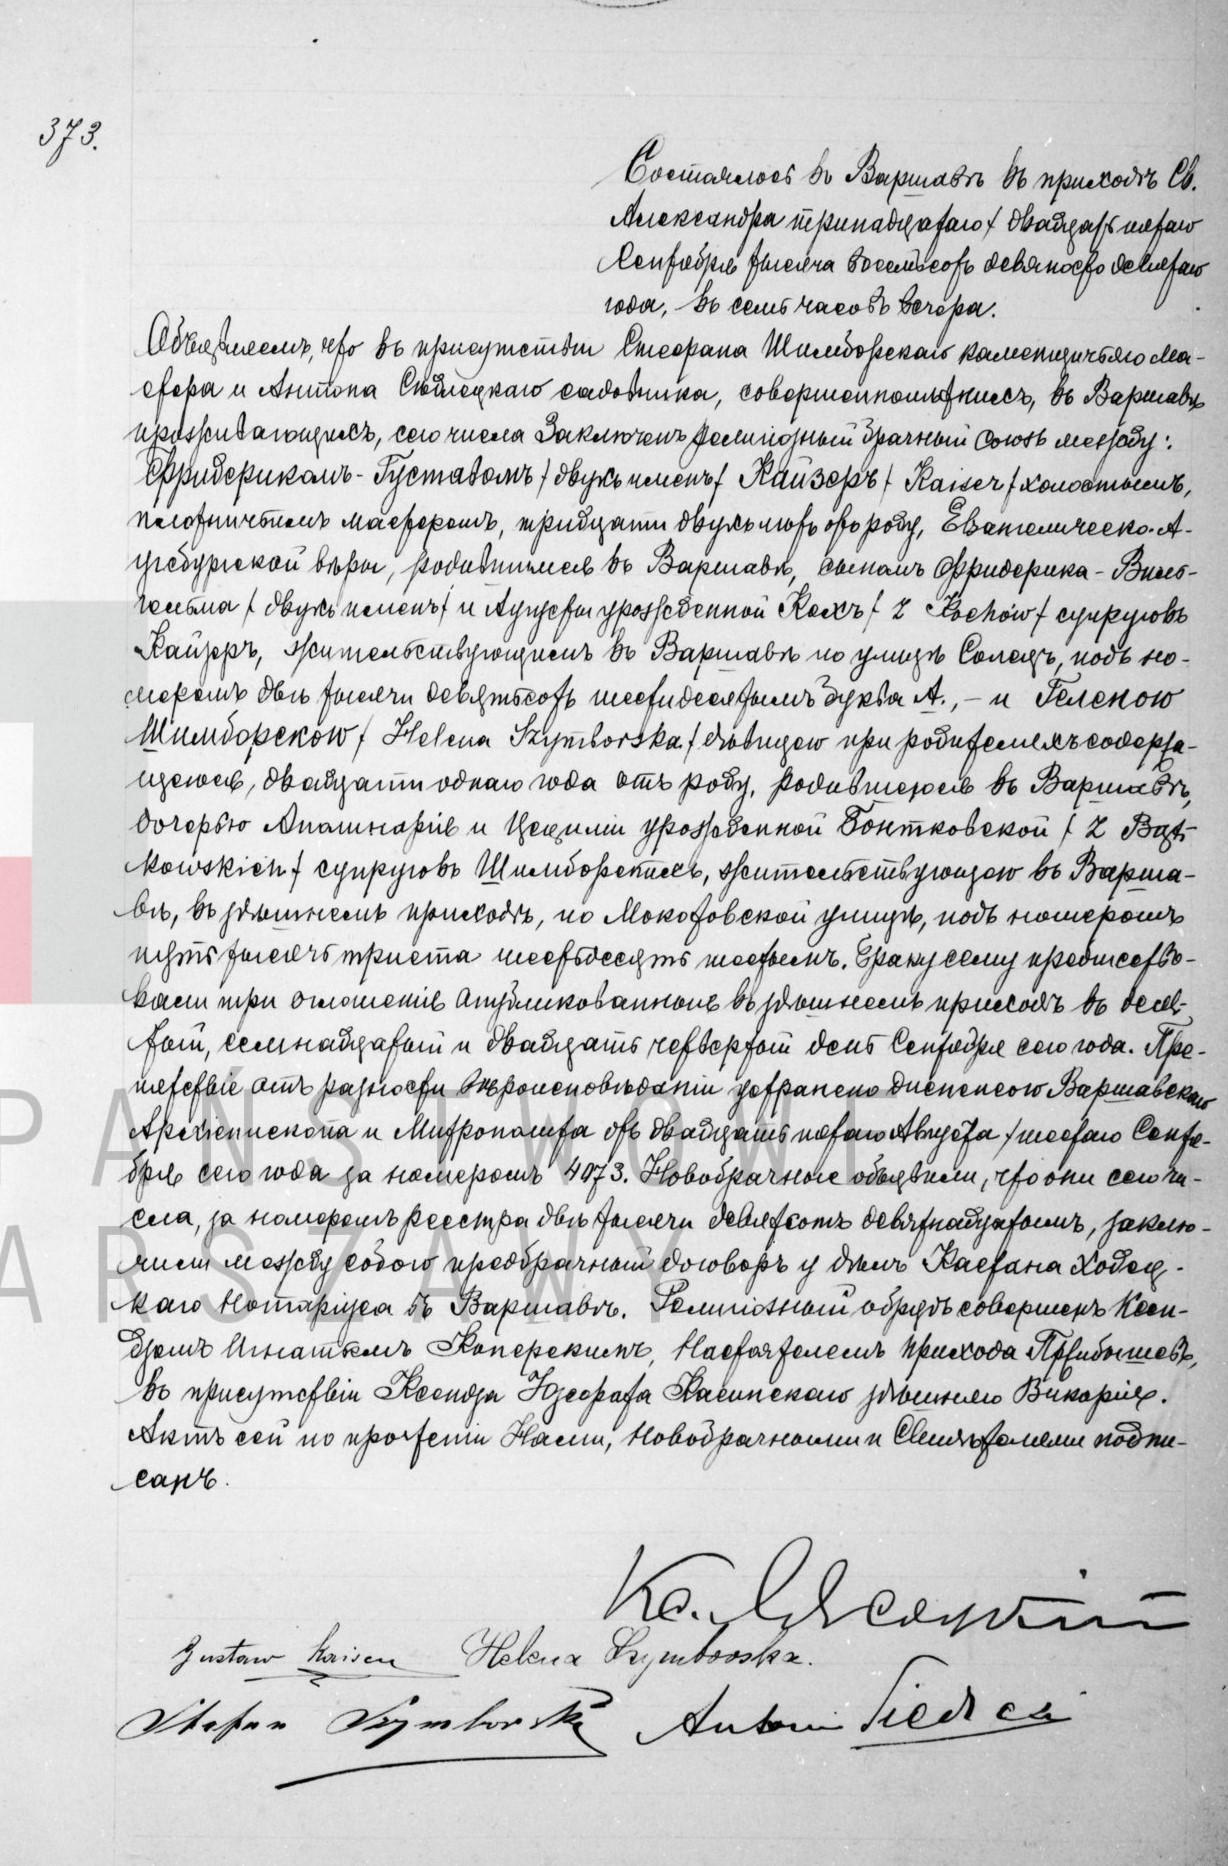 373.
Состоялось въ Варшавѣ въ приходѣ Св.
Александра тринадцатаго / двадцать пятаго
Сентября тысяча восемьсотъ девяносто девятаго
года, въ семь часовъ вечера.
Объявляемъ, что въ присутствіи Стефана Шимборскаго каменщичьяго ма-
стера и Антона Сѣдлецкаго садовника, совершеннолѣтнихъ, въ Варшавѣ
проживающихъ, сего числа заключенъ религіозный брачный союзъ между:
Фридерикомъ-Густавомъ / двухъ именъ / Кайзеръ / Kaiser / холостымъ,
плотничьимъ мастеромъ, тридцати двухъ лѣтъ отъ роду, Евангелическо-А-
угсбургской вѣры, родившимся въ Варшавѣ, сыномъ Фридерика-Виль-
гельма / двухъ именъ / и Августы урожденной Кохъ / z Kochów / супруговъ
Кайзеръ, жительствующимъ въ Варшавѣ по улицѣ Солецъ, подъ но-
меромъ двѣ тысячи девятьсотъ шестидесятымъ буква А., - и Геленою
Шимборскою / Helena Szymborska / дѣвицею при родителяхъ содержа-
щеюся, двадцати одного года отъ роду, родившеюся въ Варшавѣ,
дочерью Аполинарія и Цециліи урожденной Бонтковской / z Bąt-
kowskich / супруговъ Шимборскихъ, жительствующею въ Варша-
вѣ, въ здѣшнемъ приходѣ, по Мокотовской улицѣ, подъ номеромъ
пять тысячъ триста шестьдесятъ шестымъ. Браку сему предшество-
вали три оглашенія опубликованныя въ здѣшнемъ приходѣ въ деся-
тый, семнадцатый и двадцать четвертый день Сентября сего года. Пре-
пятствіе отъ разности вѣроисповѣданій устранено диспенсою Варшавскаго
Архіепископа и Митрополита отъ двадцать пятаго Августа / шестаго Сентя-
бря сего года за номеромъ 4073. Новобрачные объявили, что они сего чи-
сла, за номеромъ реестра двѣ тысячи девятсотъ девятнадцатымъ, заклю-
чили между собою предбрачный договоръ у дѣлъ Каетана Ходец-
каго Нотаріуса въ Варшавѣ. Религіозный обрядъ совершенъ Ксен-
дзомъ Игнатіемъ Коперскимъ, Настоятелемъ прихода Прибышевъ,
въ присутствіи Ксендза Юзефата Касинскаго здѣшняго Викарія.
Актъ сей по прочтеніи Нами, новобрачными и свидѣтелями подпи-
санъ.
Gustaw Kaiser Helena Szymborska.
Stefan Szymborski Antoni Siedlecki
PAŃSTWOWE
ARSZAWY